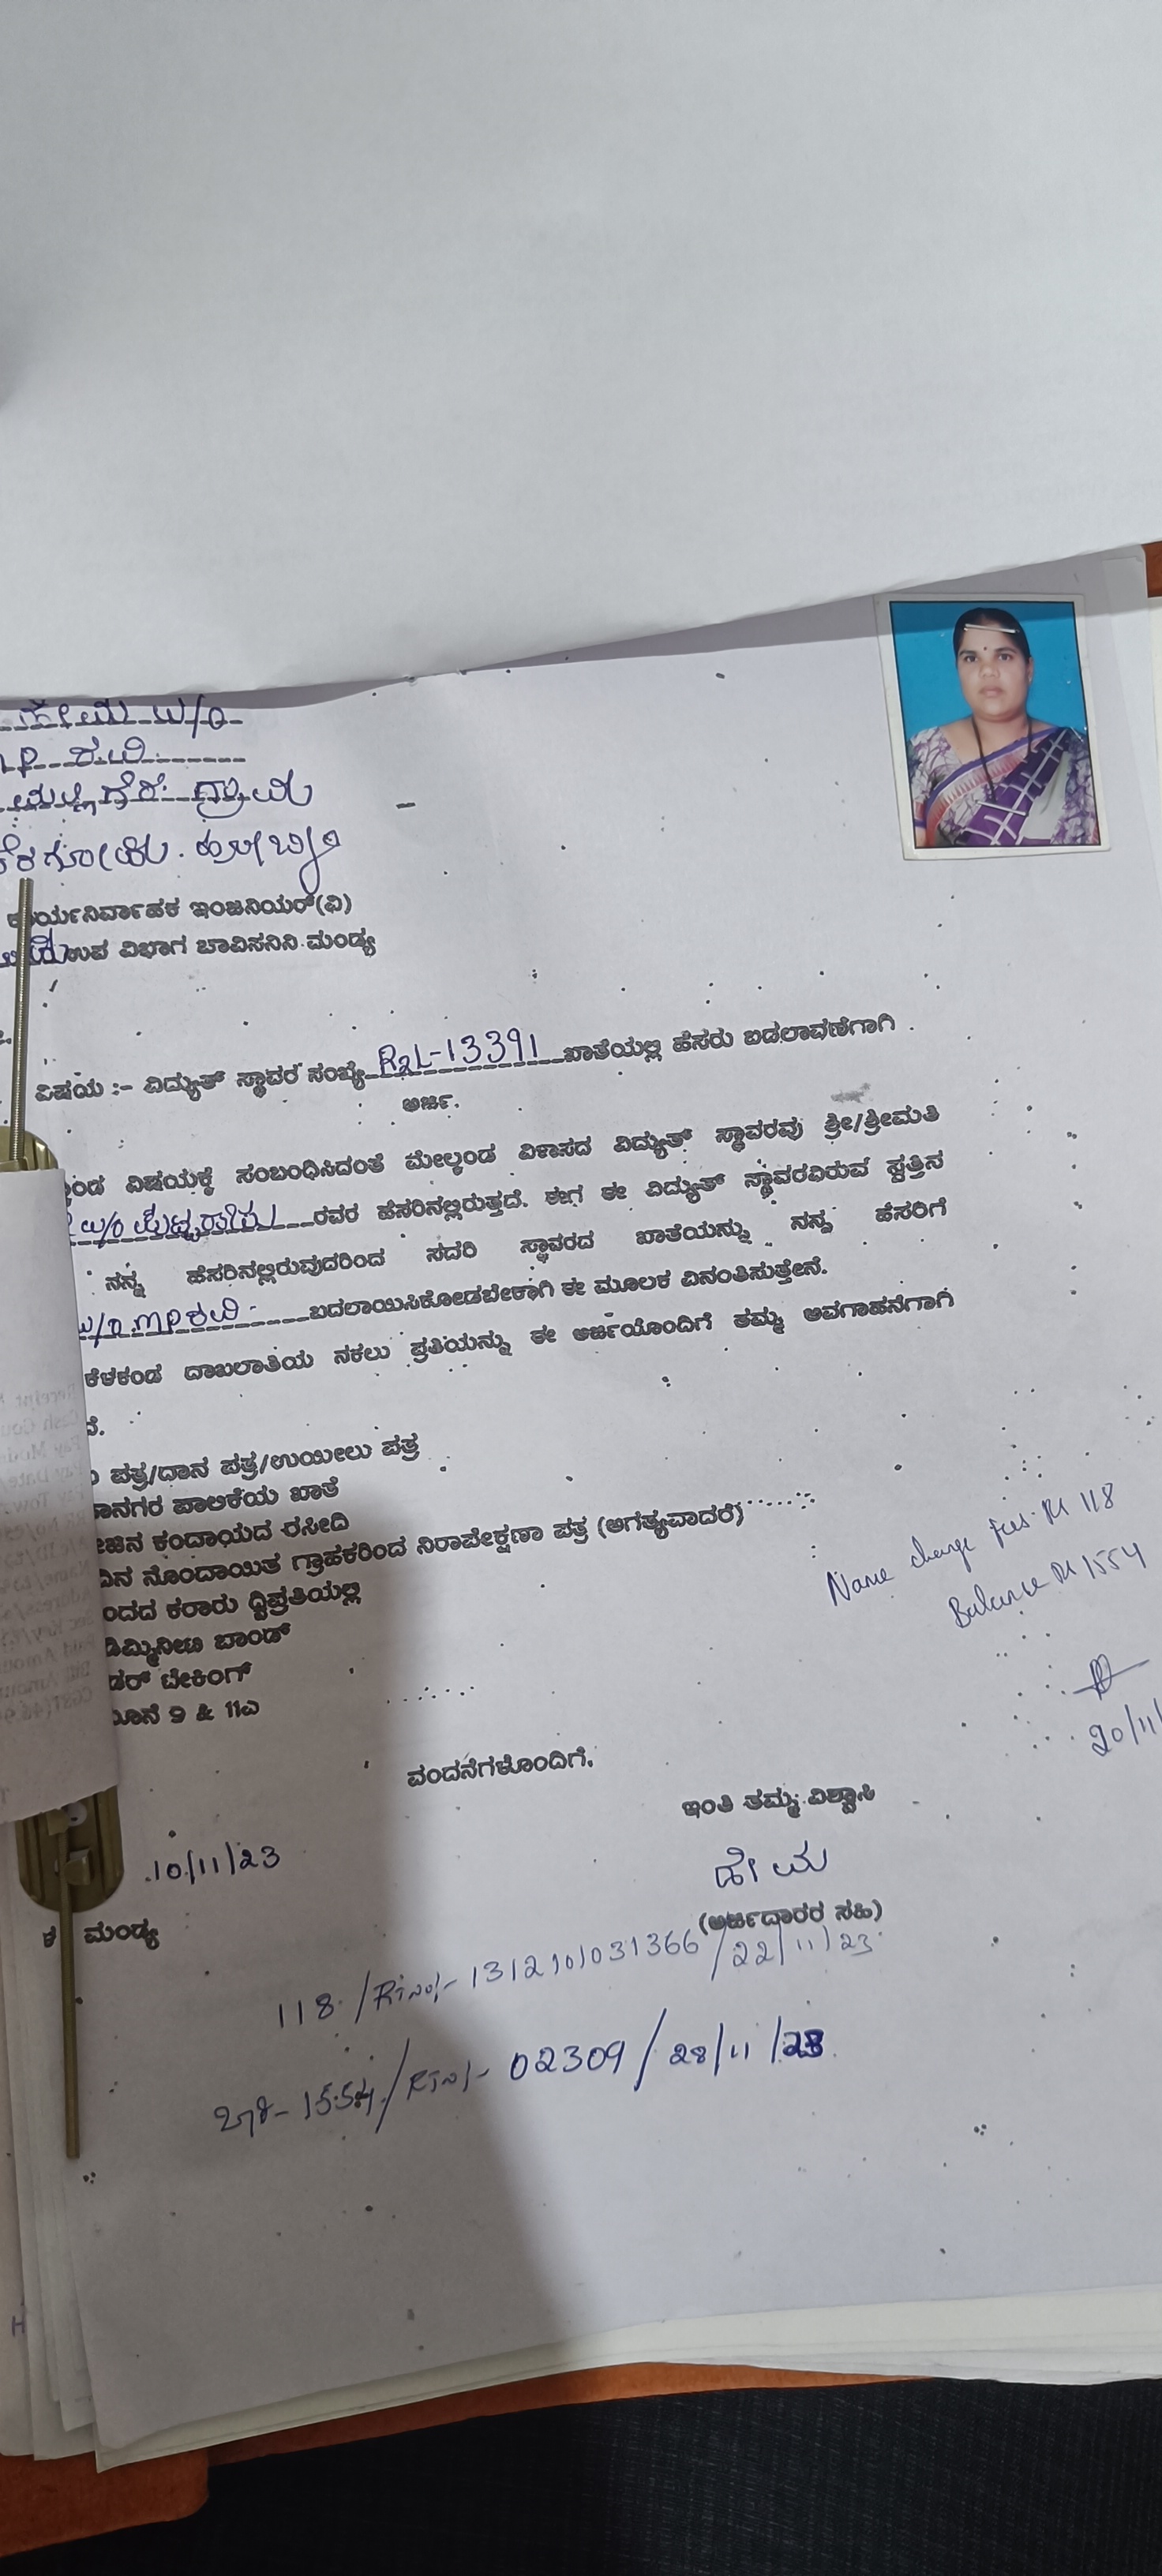 ಹೇಮ W/O
ರವಿ
ಗ್ರಾಮ
ಕಾರ್ಯನಿರ್ವಾಹಕ ಇಂಜನಿಯರ್(ವಿ)
ಉಪ ವಿಭಾಗ ಚಾವಿಸನಿನಿ ಮಂಡ್ಯ
ವಿಷಯ :- ವಿದ್ಯುತ್ ಸ್ಥಾವರ ಸಂಖ್ಯೆ R2L-13391 ಖಾತೆಯಲ್ಲಿ ಹೆಸರು ಬದಲಾವಣೆಗಾಗಿ
ಅರ್ಜಿ.
ವಿಷಯಕ್ಕೆ ಸಂಬಂಧಿಸಿದಂತೆ ಮೇಲ್ಕಂಡ ವಿಳಾಸದ ವಿದ್ಯುತ್ ಸ್ಥಾವರವು ಶ್ರೀ/ಶ್ರೀಮತಿ
W/O ರವರ ಹೆಸರಿನಲ್ಲಿರುತ್ತದೆ. ಈಗ ಈ ವಿದ್ಯುತ್ ಸ್ಥಾವರವಿರುವ ಸ್ವತ್ತಿನ
ನನ್ನ ಹೆಸರಿನಲ್ಲಿರುವುದರಿಂದ ಸದರಿ ಸ್ಥಾವರದ ಖಾತೆಯನ್ನು ನನ್ನ ಹೆಸರಿಗೆ
W/O MP ರವಿ ಬದಲಾಯಿಸಿಕೋಡಬೇಕಾಗಿ ಈ ಮೂಲಕ ವಿನಂತಿಸುತ್ತೇನೆ.
ಕೆಳಕಂಡ ದಾಖಲಾತಿಯ ನಕಲು ಪ್ರತಿಯನ್ನು ಈ ಅರ್ಜಿಯೊಂದಿಗೆ ತಮ್ಮ ಅವಗಾಹನೆಗಾಗಿ
ಪತ್ರ/ದಾನ ಪತ್ರ/ಉಯೀಲು ಪತ್ರ
ಪಾಲಿಕೆಯ ಖಾತೆ
ಕಂದಾಯದ ರಸೀದಿ
ನೊಂದಾಯಿತ ಗ್ರಾಹಕರಿಂದ ನಿರಾಪೇಕ್ಷಣಾ ಪತ್ರ (ಅಗತ್ಯವಾದರೆ)
ಕರಾರು ದ್ವಿಪ್ರತಿಯಲ್ಲಿ
ಬಾಂಡ್
ಟೇಕಿಂಗ್
9 & 11ಎ
Name change fees Rs 118
Balance Rs 1554
20/11/
ವಂದನೆಗಳೊಂದಿಗೆ.
ಇಂತಿ ತಮ್ಮ ವಿಶ್ವಾಸಿ
10/11/23
ಹೇಮ
ಮಂಡ್ಯ
(ಅರ್ಜಿದಾರರ ಸಹಿ)
118 / RTNO/- 1312101031366 / 22/11/23
1554 / RTNO/- 02309 / 28/11/23